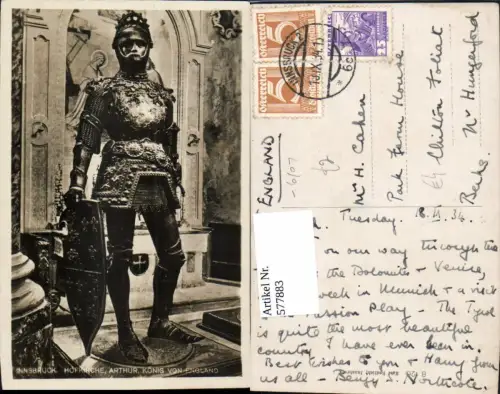 INNSBRUCK. HOFKIRCHE, ARTHUR, KÖNIG VON ENGLAND
österreich
österreich
österreich
5
5
25
INNSBRUCK 2
ENGLAND
-6/07
Mr H. Cahen
Park Farm House
Chilton Foliat
Nr Hungerford
Berks.
Artikel Nr.
577883
Tuesday. 18. IX. 34.
on our way through the
the Dolomites + Venice,
week in Munich + a visit
Passion Play. The Tyrol
is quite the most beautiful
country I have ever been in.
Best wishes to you + Harry from
us all - Northcote.